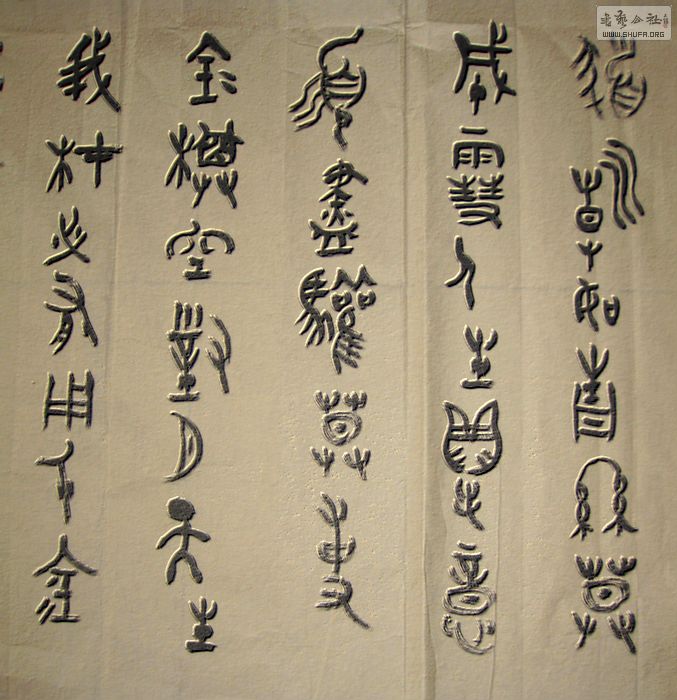 髮朝如青絲莫
成雪人生得意
須盡驩莫使
金樽空對月天生
我材必有用千金
書藝公社
WWW.SHUFA.ORG